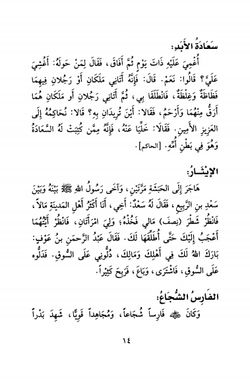 سَعَادَةُ الأَبَدِ:
أُغْمِيَ عَلَيْهِ ذَاتَ يَوْمٍ ثُمَّ أَفَاقَ، فَقَالَ لِمَنْ حَوْلَهُ: أُغْشِيَ
عَلَيَّ؟ قَالُوا: نَعَمْ. قَالَ: فَإِنَّهُ أَتَانِي مَلَكَانِ أَوْ رَجُلَانِ فِيهِمَا
فَظَاظَةٌ وَغِلْظَةٌ، فَانْطَلَقَا بِي، ثُمَّ أَتَانِي رَجُلَانِ أَوْ مَلَكَانِ هُمَا
أَرَقُّ مِنْهُمَا وَأَرْحَمُ، فَقَالَا: أَيْنَ تُرِيدَانِ بِهِ؟ قَالَا: نُحَاكِمُهُ إِلَى
العَزِيزِ الأَمِينِ. فَقَالَا: خَلِّيَا عَنْهُ، فَإِنَّهُ مِمَّنْ كُتِبَتْ لَهُ السَّعَادَةُ
وَهُوَ فِي بَطْنِ أُمِّهِ. [الحاكم].
الإِيثَارُ:
هَاجَرَ إِلَى الحَبَشَةِ مَرَّتَيْنِ، وَآخَى رَسُولُ اللهِ ﷺ بَيْنَهُ وَبَيْنَ
سَعْدِ بنِ الرَّبِيعِ، فَقَالَ لَهُ سَعْدٌ: أَخِي، أَنَا أَكْثَرُ أَهْلِ المَدِينَةِ مَالاً،
فَانْظُرْ شَطْرَ (نصف) مَالِي فَخُذْهُ؛ وَلِي امْرَأَتَانِ، فَانْظُرْ أَيَّتُهُمَا
أَعْجَبُ إِلَيْكَ حَتَّى أُطَلِّقَهَا لَكَ. فَقَالَ عَبْدُ الرَّحْمَنِ بنُ عَوْفٍ:
بَارَكَ اللهُ لَكَ فِي أَهْلِكَ وَمَالِكَ، دُلُّونِي عَلَى السُّوقِ. فَدَلُّوهُ
عَلَى السُّوقِ، فَاشْتَرَى، وَبَاعَ، فَرَبِحَ كَثِيراً.
الفَارِسُ الشُّجَاعُ:
وَكَانَ ﷺ فَارِساً شُجَاعاً، وَمُجَاهِداً قَوِيًّا، شَهِدَ بَدْراً
١٤